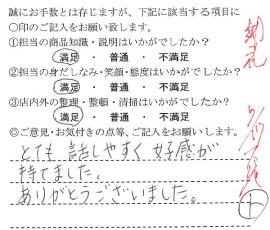 誠にお手数とは存じますが、下記に該当する項目に
○印のご記入をお願い致します。
①担当の商品知識・説明はいかがでしたか?
満足 ・ 普通 ・ 不満足
②担当の身だしなみ・笑顔・態度はいかがでしたか?
満足 ・ 普通 ・ 不満足
③店内外の整理・整頓・清掃はいかがでしたか?
満足 ・ 普通 ・ 不満足
◎ご意見・お気付きの点等、ご記入をお願いします。
とても 話しやすく 好感が
持てました。
ありがとうございました。